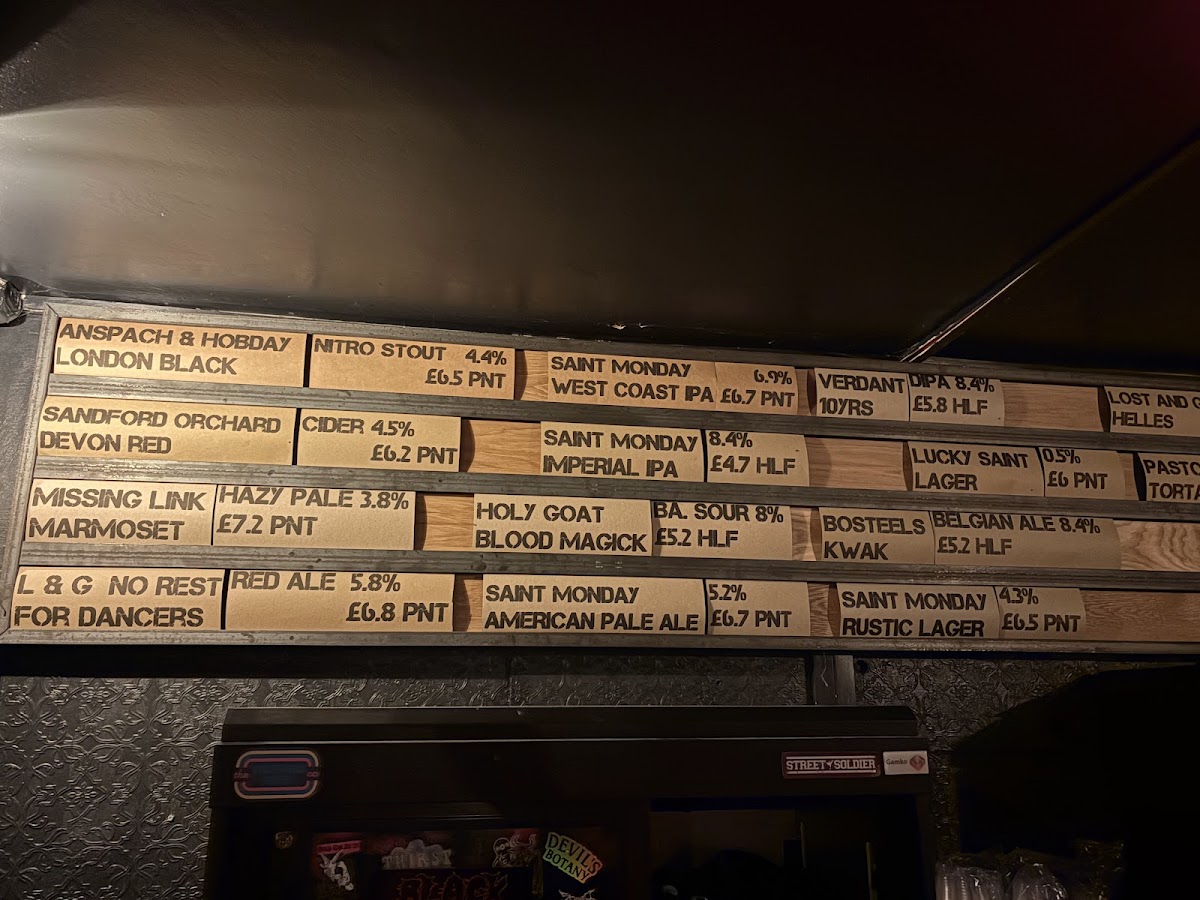 ANSPACH & HOBDAY
LONDON BLACK
NITRO STOUT 4.4%
£6.5 PNT
SAINT MONDAY 6.9%
WEST COAST IPA £6.7 PNT
VERDANT DIPA 8.4%
10YRS £5.8 HLF
LOST AND G
HELLES
SANDFORD ORCHARD
DEVON RED
CIDER 4.5%
£6.2 PNT
SAINT MONDAY 8.4%
IMPERIAL IPA £4.7 HLF
LUCKY SAINT 0.5%
LAGER £6 PNT
PASTO
TORTA
MISSING LINK
MARMOSET
HAZY PALE 3.8%
£7.2 PNT
HOLY GOAT BA. SOUR 8%
BLOOD MAGICK £5.2 HLF
BOSTEELS BELGIAN ALE 8.4%
KWAK £5.2 HLF
L & G NO REST
FOR DANCERS
RED ALE 5.8%
£6.8 PNT
SAINT MONDAY 5.2%
AMERICAN PALE ALE £6.7 PNT
SAINT MONDAY 4.3%
RUSTIC LAGER £6.5 PNT
STREET SOLDIER
Gamko
THIRST
DEVIL'S
BOTANY
BLACK